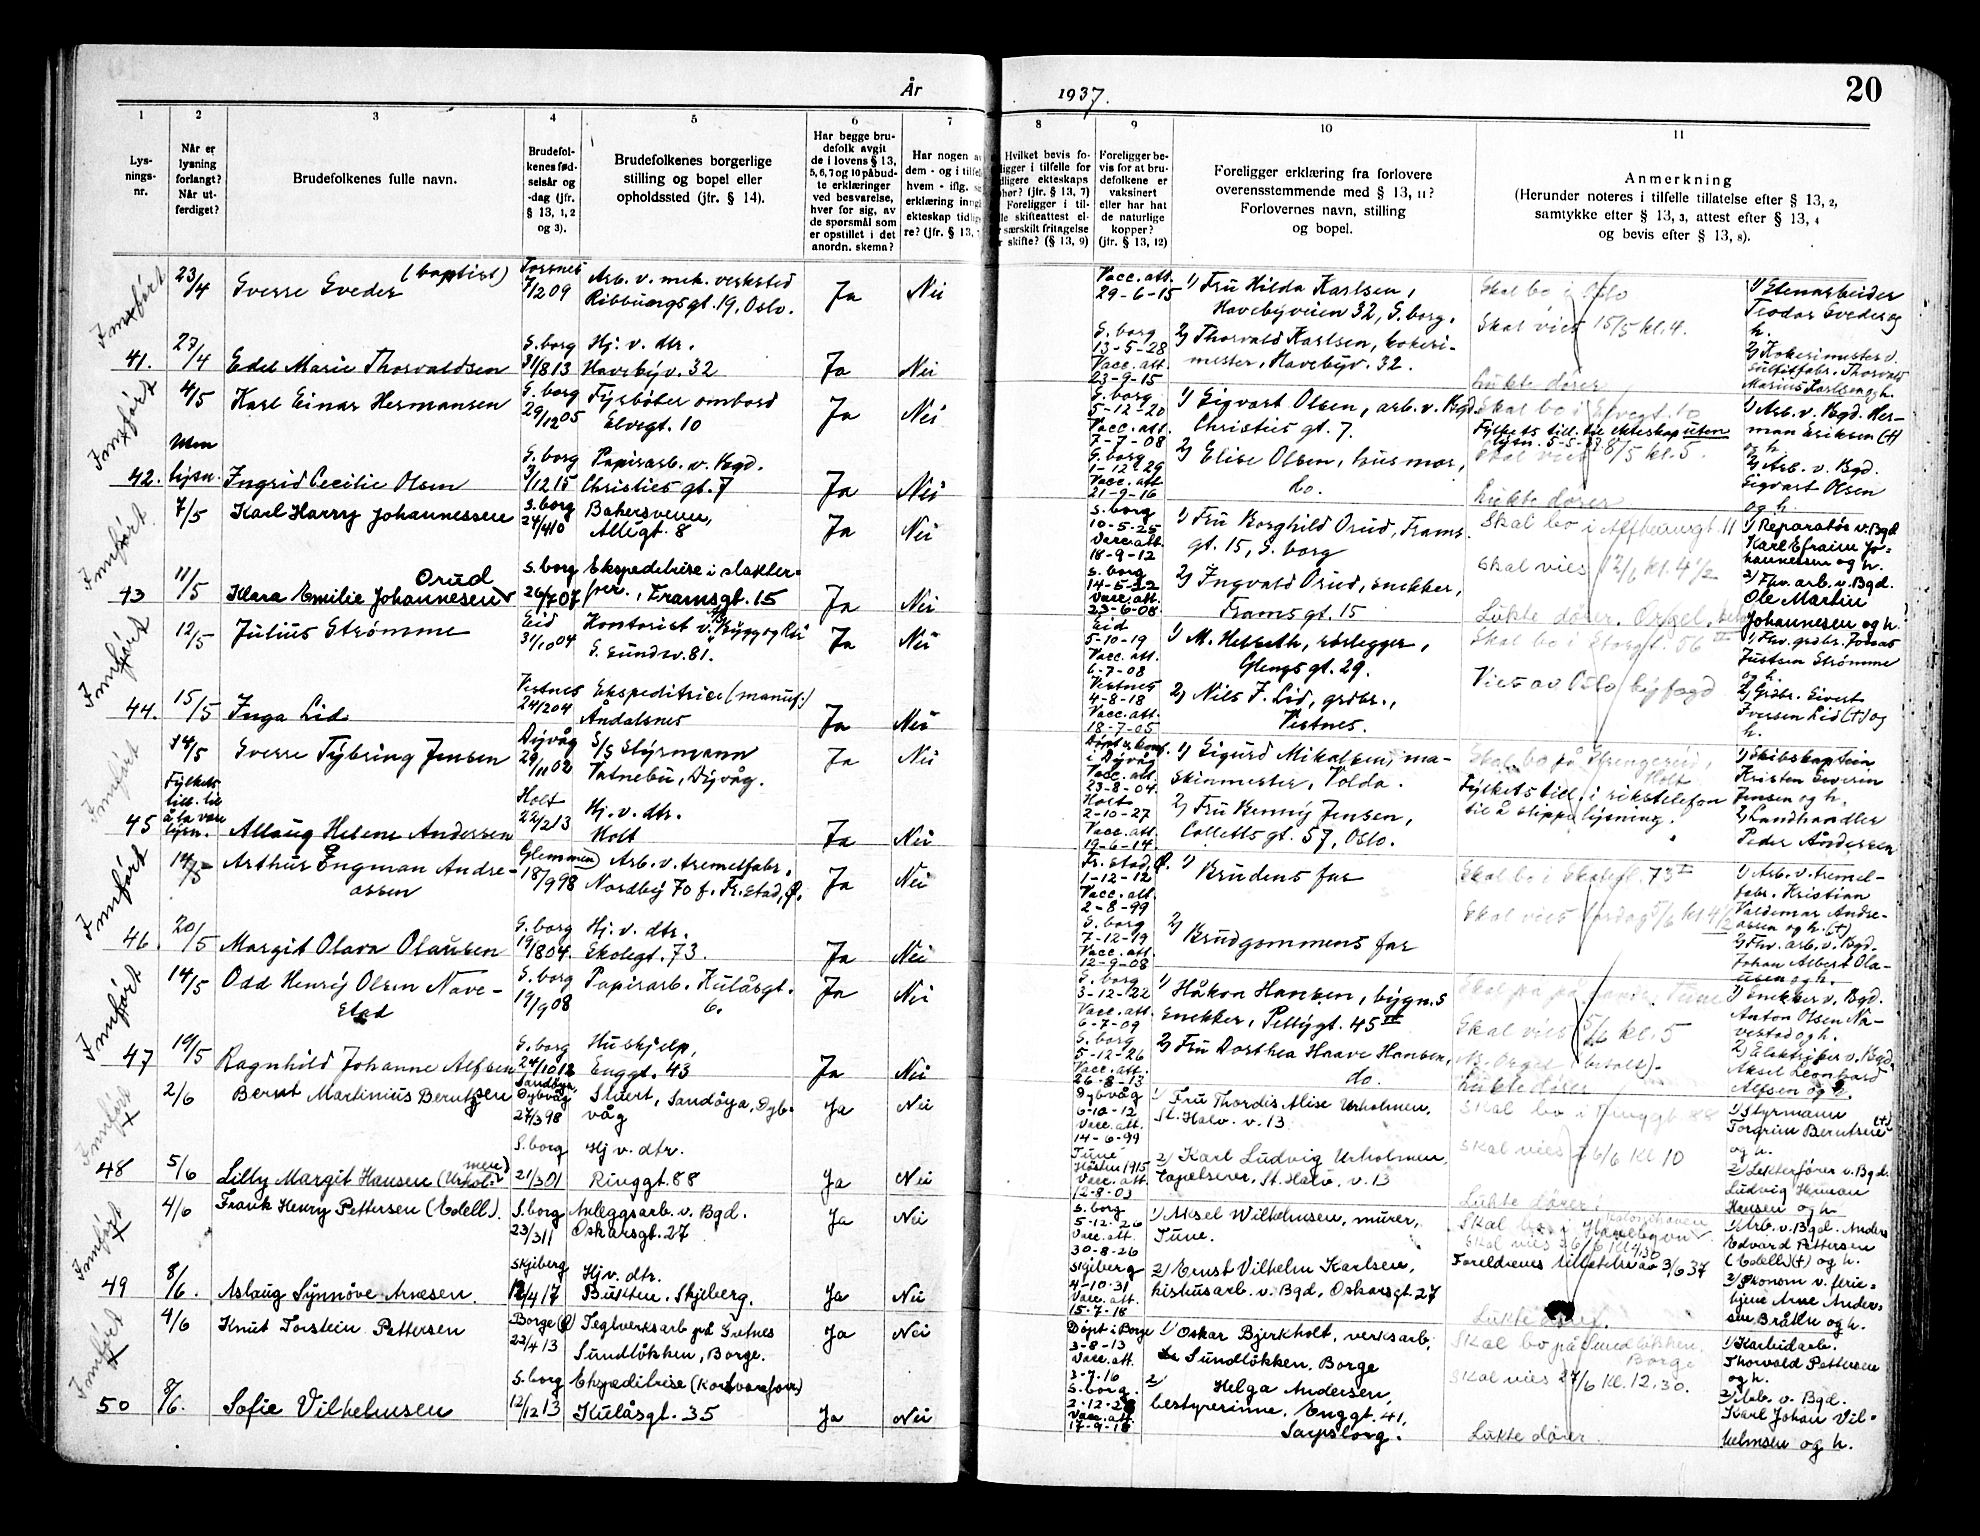 År 1937.
20
1
2
3
4
5
6
7
8
9
10
11
Lys-
nings-
nr.
Når er
lysning
forlangt?
Når ut-
ferdiget?
Brudefolkenes fulle navn.
Brudefol-
kenes fød-
selsår og
-dag (jfr.
§ 13, 1, 2
og 3).
Brudefolkenes borgerlige
stilling og bopel eller
opholdssted (jfr. § 14).
Har begge bru-
defolk avgit
de i lovens § 13,
5, 6, 7 og 10 påbud-
te erklæringer
ved besvarelse,
hver for sig, av
de spørsmål som
er opstillet i det
anordn. skema?
Har nogen av
dem - og i tilfelle
hvem - iflg.
erklæring inngå
ekteskap tidlig
re? (jfr. § 13,
Hvilket bevis fo-
ligger i tilfelle for
dligere ekteskaps
phør? (jfr. § 13, 7)
Foreligger i til-
le skifteattest el-
særskilt fritagelse
skifte? (§ 13, 9)
Foreligger be-
vis for at bru-
defolkene er
vaksinert
eller har hat
de naturlige
kopper?
(jfr. § 13, 12)
Foreligger erklæring fra forlovere
overensstemmende med § 13, 11?
Forlovernes navn, stilling
og bopel.
Anmerkning
(Herunder noteres i tilfelle tillatelse efter § 13, 2,
samtykke efter § 13, 3, attest efter § 13, 4
og bevis efter § 13, 8).
Innført
23/4
Sverre Sveder (baptist)
Torsnes
7/2 09
Arb. v. mek. verksted
Ribbungsgt. 19, Oslo.
Ja
Nei
Vacc. att.
29-6-15
1) Fru Hilda Karlsen,
Havebyveien 32, S.borg.
Skal bo i Oslo
Skal vies 15/5 kl. 4.
1) Stenarbeider
Teodor Sveder og
h.
41.
27/4
Edel Marie Thorvaldsen
S.borg
31/8 13
Hj. v. dtr.
Havebyv. 32
Ja
Nei
S.borg
13-5-28
Vacc. att.
23-9-15
2) Thorvald Karlsen, kokeri-
mester, Havebyv. 32.
Lukte dører
2) Kokerimester v.
Sulfitfabr. Thorvald
Marius Karlsen og h.
Innført
4/5
Karl Einar Hermansen
S.borg
29/12 05
Fyrbøter ombord
Elvegt. 10
Ja
Nei
S.borg
5-12-20
Vacc. att.
7-7-08
1) Sigvart Olsen, arb. v. Bgd.
Christies gt. 7.
Skal bo i Elvegt. 10
Fylkets till. til ekteskap uten
lysn. 5-5-37
Skal vies 8/5 kl. 5.
1) Arb. v. Bgd. Her-
man Eriksen (†)
og h.
42.
Uten
lysn.
Ingrid Cecilie Olsen
S.borg
3/12 15
Papirarb. v. Bgd.
Christies gt. 7
Ja
Nei
S.borg
1-12-29
Vacc. att
21-9-16
2) Elise Olsen, husmor,
do.
Lukte dører
2) Arb. v. Bgd.
Sigvart Olsen
og h.
Innført
7/5
Karl Harry Johannessen
S.borg
24/4 10
Bakersvenn,
Allégt. 8
Ja
Nei
S.borg
10-5-25
Vacc. att.
18-9-12
1) Fru Borghild Orud, Frams-
gt. 15, S.borg
Skal bo i Alfheimgt. 11
Skal vies 12/6 kl. 4 1/2
1) Reparatør v. Bgd
Karl Efraim Jo-
hannessen og h.
43
11/5
Klara Emilie Johannesen Orud
S.borg
26/7 07
Ekspeditrise i slakter-
forr., Framsgt. 15
Ja
Nei
S.borg
14-5-22
Vacc. att.
23-6-08
2) Ingvald Orud, snekker,
Framsgt. 15
Lukte dører. Orgel, bet.
2) Fhv. arb. v. Bgd.
Ole Martin
Johannesen og h.
Innført
12/5
Julius Strømme
Eid
31/10 04
Kontorist v.
S. Sundsv. 81.
Ja
Nei
Eid
5-10-19
Vacc. att.
6-7-08
1) M. Helseth, rørlegger,
Glengsgt. 29.
Skal bo i Storgt. 56
Vies av Oslo byfogd
1) Fhv. grdbr. Jonas
Justsen Strømme
og h.
44.
15/5
Inga Lid
Vestnes
24/2 04
Ekspeditrice (manuf.)
Åndalsnes
Ja
Nei
Vestnes
4-8-18
Vacc. att.
18-7-05
2) Nils J. Lid, grdbr.,
Vestnes.
2) Grdbr. Sivert
Iversen Lid (†) og
h.
Innført
14/5
Sverre Tybring Jensen
Dyvåg
29/11 02
S/S Styrmann
Vatnebu, Dyvåg.
Ja
Nei
Døpt & konf.
i Dyvåg
Vacc. att.
23-8-04.
1) Sigurd Mikalsen, ma-
skinmester, Volda.
Skal bo på Strengereid,
Holt
Fylkets till. i rikstelefon
til å slippe lysning.
1) Skibskaptein
Kristen Severin
Jensen og h.
45
Fylkets
till. til
å la være
lysn.
Aslaug Helene Andersen
Holt
22/2 13
Hj. v. dtr.
Holt
Ja
Nei
Holt
2-10-27
Vacc. att.
19-6-14
2) Fru Benny Jensen,
Colletts gt. 57, Oslo.
2) Landhandler
Peder Andersen
Innført
14/5
Arthur Engman Andre-
assen
Glemmen
18/9 98
Arb. v. tremelfabr.
Nordby 70 f. Fr.stad, Ø.
Ja
Nei
Fr.stad, Ø.
1-12-12
Vacc. att.
2-8-99
1) Brudens far
Skal bo i Skolegt. 73
Skal vies lørdag 5/6 kl 4 1/2
1) Arb. v. tremel-
fabr. Kristian
Valdemar Andre-
assen og h. (†)
46.
20/5
Margit Olava Olausen
S.borg
19/8 04.
Hj. v. dtr.
Skolegt. 73.
Ja
Nei
S.borg
7-12-19
Vacc. att.
12-9-08
2) Brudgommens far
2) Fhv. arb. v. Bgd.
Johan Albert Ola-
usen og h.
Innført
14/5
Odd Henry Olsen Nave-
stad
S.borg
19/9 08
Papirarb. Kulåsgt.
6.
Ja
Nei
S.borg
3-12-22
Vacc. att.
6-7-09
1) Håkon Hansen, bygn.s
snekker, Pettygt. 45
Tune
Skal vies 5/6 kl. 5
1) Snekker v. Bgd.
Anton Olsen Na-
vestad og h.
47
19/5
Ragnhild Johanne Alfsen
S.borg
24/10 12
Hushjelp,
Enggt. 43
Ja
Nei
S.borg
5-12-26
Vacc. att.
26-8-13
2) Fru Dorthea Haave Hansen,
do.
Lukte dører
2) Elektriker v. Bgd.
Aksel Leonhard
Alfsen og h.
Innført
2/6
Bernt Martinius Berntsen
Sandøya,
Dybvåg
27/3 98
Stuert, Sandøya, Dyb-
våg
Ja
Nei
Dybvåg
6-10-12
Vacc. att.
14-6-99
1) Fru Thordis Alise Urholmen,
St. Halv. v. 13
Skal bo i Ringgt. 88
Skal vies 26/6 kl 10
1) Styrmann
Torgrim Berntsen (†)
og h.
48
5/6
Lilly Margit Hansen (Urholmen)
S.borg
21/3 01
Hj v. dtr.
Ringgt. 88
Ja
Nei
Tune
Høsten 1915
Vacc. att.
12-8-03
2) Karl Ludvig Urholmen,
tapetserer, St. Halv. v. 13
Lukte dører.
2) Lekterfører v. Bgd.
Ludvig Herman
Hansen og h.
Innført
4/6
Frank Henry Pettersen (Edell).
S.borg
23/3 11
Anleggsarb. v. Bgd.
Oskarsgt. 27
Ja
Nei
S.borg
5-12-26
Vacc. att.
30-8-26
1) Aksel Wilhelmsen, murer,
Tune.
Skal vies 26/6 kl 4,30
Foreldrenes tillatelse av 3/6 37
1) Arb. v. Bgd. Anders
Edvard Pettersen
(Edell) (†) og h.
49
8/6.
Aslaug Synnöve Arnesen.
Skjeberg
12/4 17
Hj v. dtr.
Bukten. Skjeberg.
Ja
Nei
Skjeberg
4-10-31
Vacc. att.
15-7-18
2) Ernst Vilhelm Karlsen,
kishusarb. v. Bgd, Oskarsgt. 27
Lukte dører.
2) Økonom v. ferie-
hjem Arne Ander-
sen Bråten og h.
Innført
4/6
Knut Torstein Pettersen
Borge
22/4 13
Teglverksarb på Gretnes
Sundløkken, Borge.
Ja
Nei
Døpt i Borge
3-8-13
Vacc. att.
3-7-16
1) Oskar Bjerkholt, verksarb,
Sundløkken. Borge
Skal bo på Sundløkken,
Borge
Skal vies 27/6 kl. 12.30.
1) Karbidarb.
Thorvald Pettersen
og h.
50
8/6.
Sofie Vilhelmsen
S.borg
12/12 13
Ekspeditrise (Kortvareforr)
Kulåsgt. 35
Ja
Nei
S.borg.
2-12-28
Vacc. att.
17-9-18
2) Helga Andersen,
bestyrerinne, Enggt. 41,
Sarpsborg.
Lukte dører.
2) Arb. v. Bgd.
Karl Johan Vil-
helmsen og h.